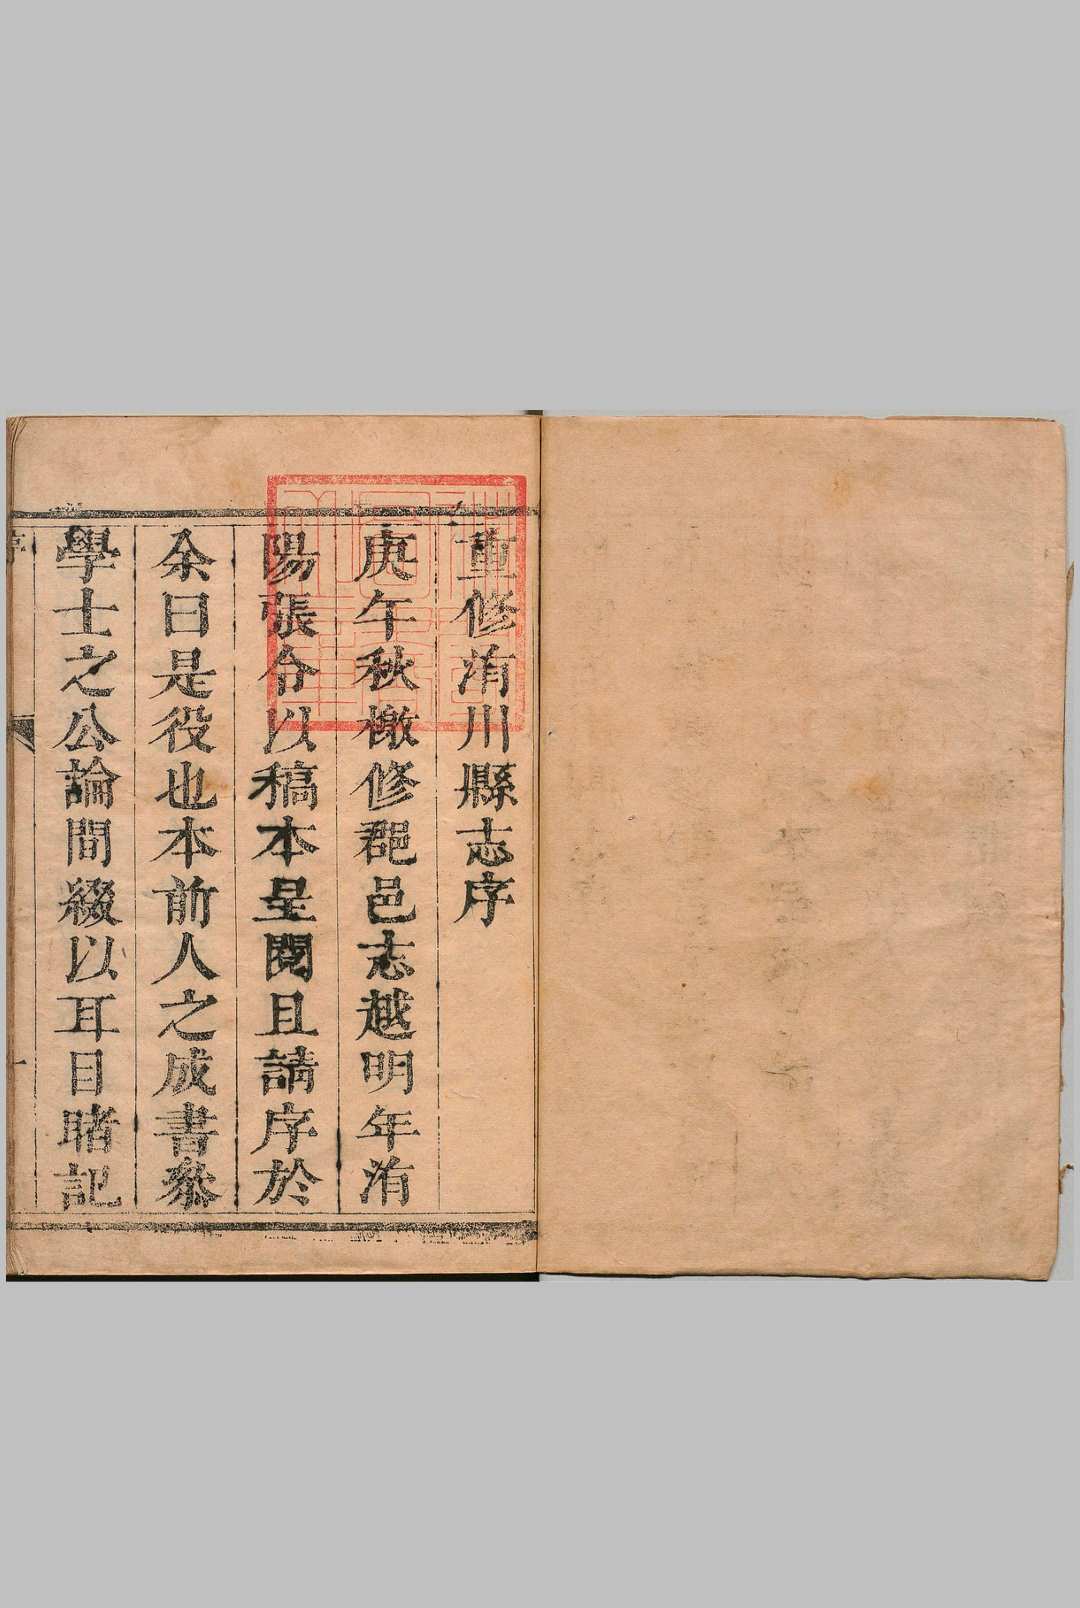 重修洧川縣志序
庚午秋檄修郡邑志越明年洧
陽張令以稿本呈閱且請序於
余曰是役也本前人之成書參
學士之公論間綴以耳目睹記
序
一